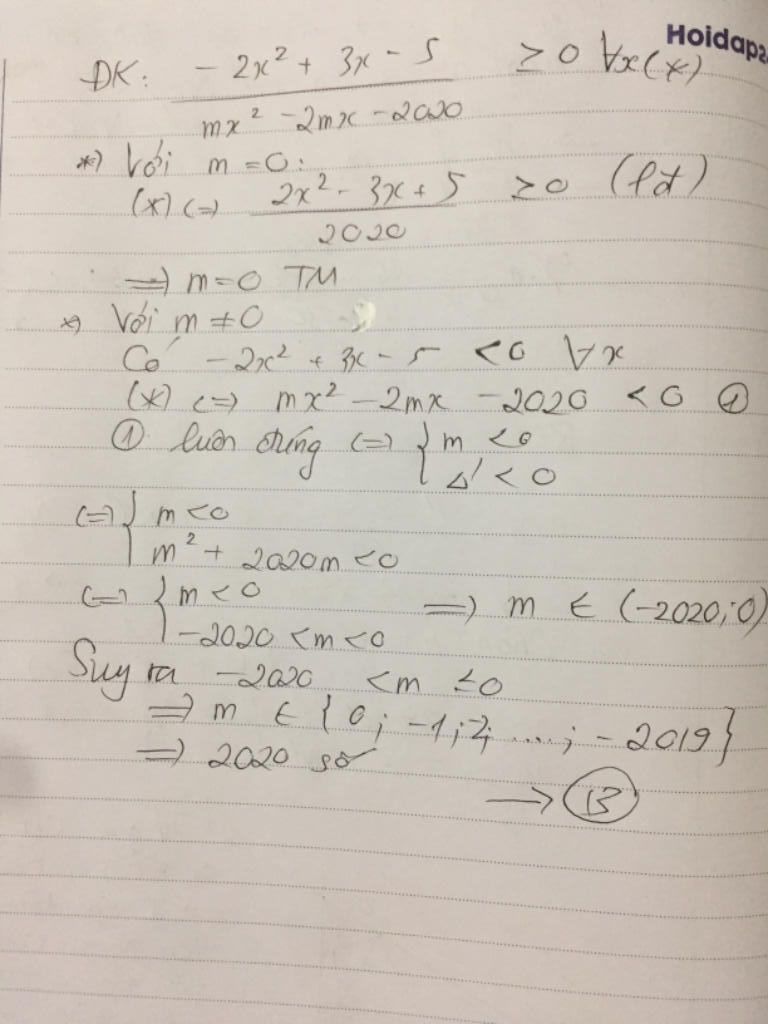 Hoidap2
ĐK: (-2x² + 3x - 5)/(mx² - 2mx - 2020) ≥ 0 ∀x (*)
*) Với m = 0:
(*) <=> (2x² - 3x + 5)/2020 ≥ 0 (lđ)
=> m = 0 TM
*) Với m ≠ 0
Có -2x² + 3x - 5 < 0 ∀x
(*) <=> mx² - 2mx - 2020 < 0 ①
① luôn đúng <=> { m < 0
Δ' < 0
<=> { m < 0
m² + 2020m < 0
<=> { m < 0
-2020 < m < 0 => m ∈ (-2020; 0)
Suy ra -2020 < m ≤ 0
=> m ∈ {0; -1; 2; ....; -2019}
=> 2020 số
→ Ⓑ